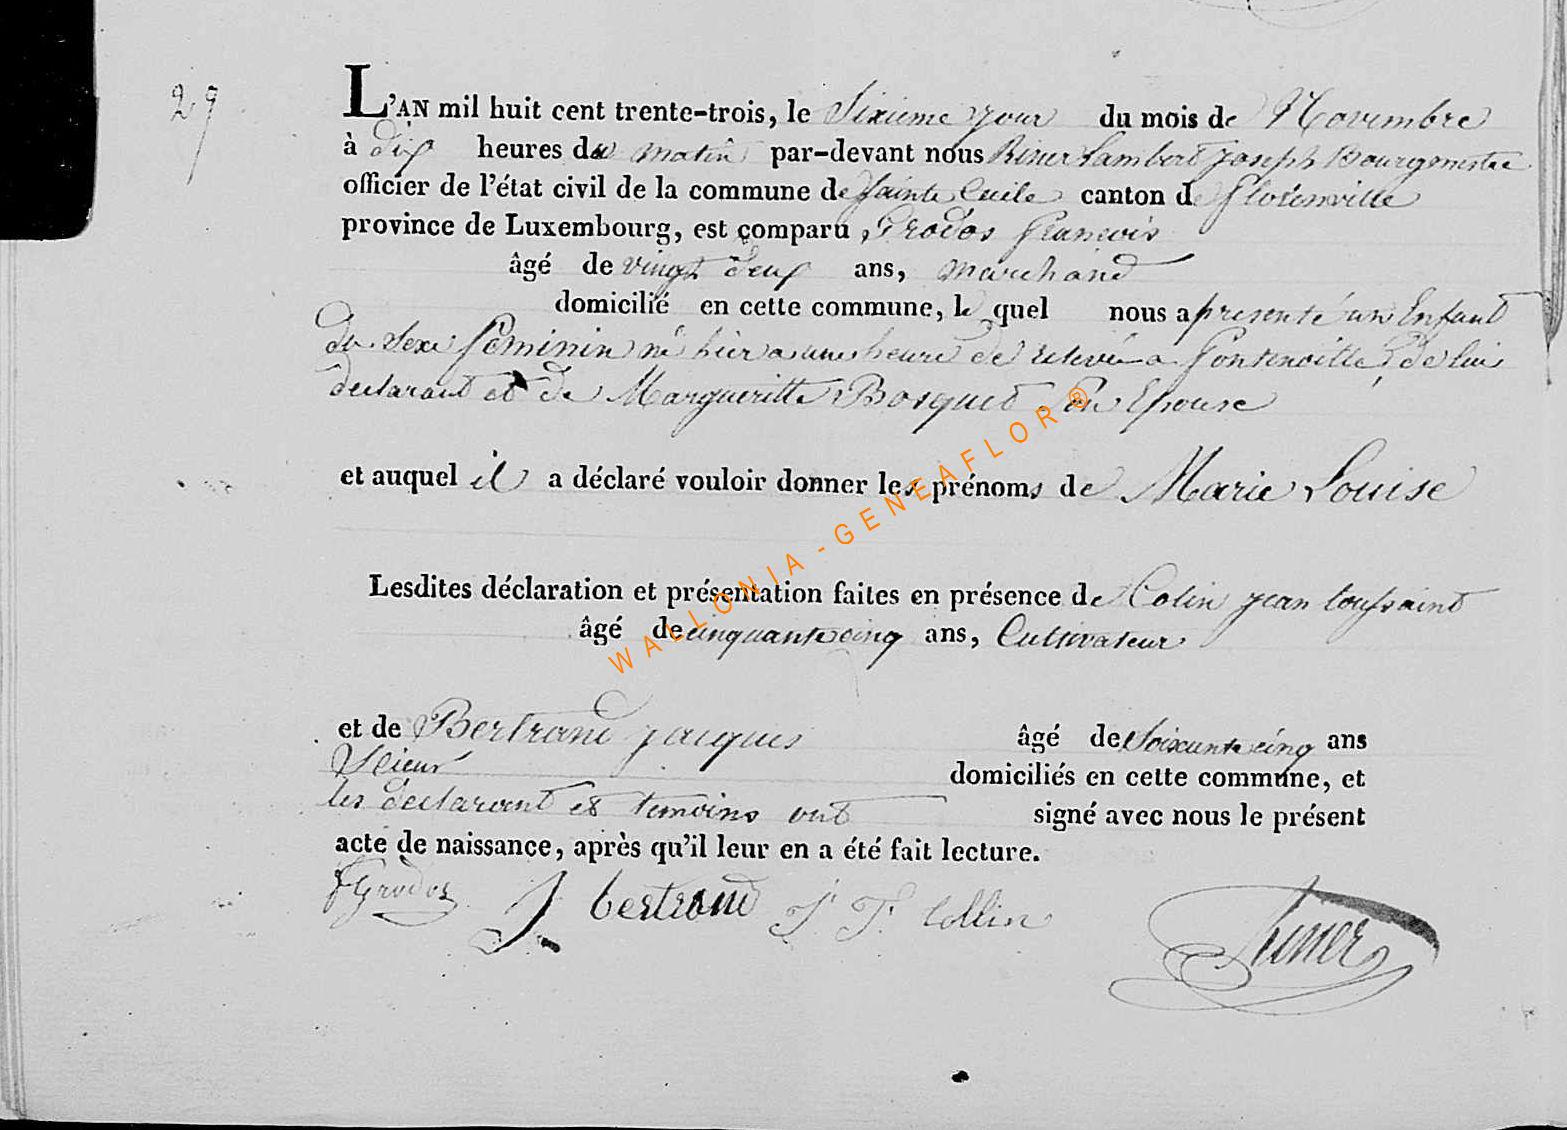 29
L'AN mil huit cent trente-trois, le Sixieme jour du mois de Novembre
à dix heures du matin par-devant nous Riner Lambert joseph Bourgmestre
officier de l'état civil de la commune de Sainte Cecile canton de florenville
province de Luxembourg, est comparu Grodos francois
âgé de vingt deux ans, marchand
domicilié en cette commune, le quel nous a presenté un Enfant
du sexe féminin né hier a une heure de relevée a fontenoille, de lui
declarant et de Margueritte Bosquet son Epouse
et auquel il a déclaré vouloir donner les prénoms de Marie Louise
Lesdites déclaration et présentation faites en présence de Colin jean toussaint
âgé de cinquante cinq ans, Cultivateur
et de Bertrand jacques âgé de Soixante cinq ans
domiciliés en cette commune, et
les declarant et temoins ont signé avec nous le présent
acte de naissance, après qu'il leur en a été fait lecture.
f Grodos J bertrand J. T. Collin Riner
WALLONIA - GENEAFLOR ®